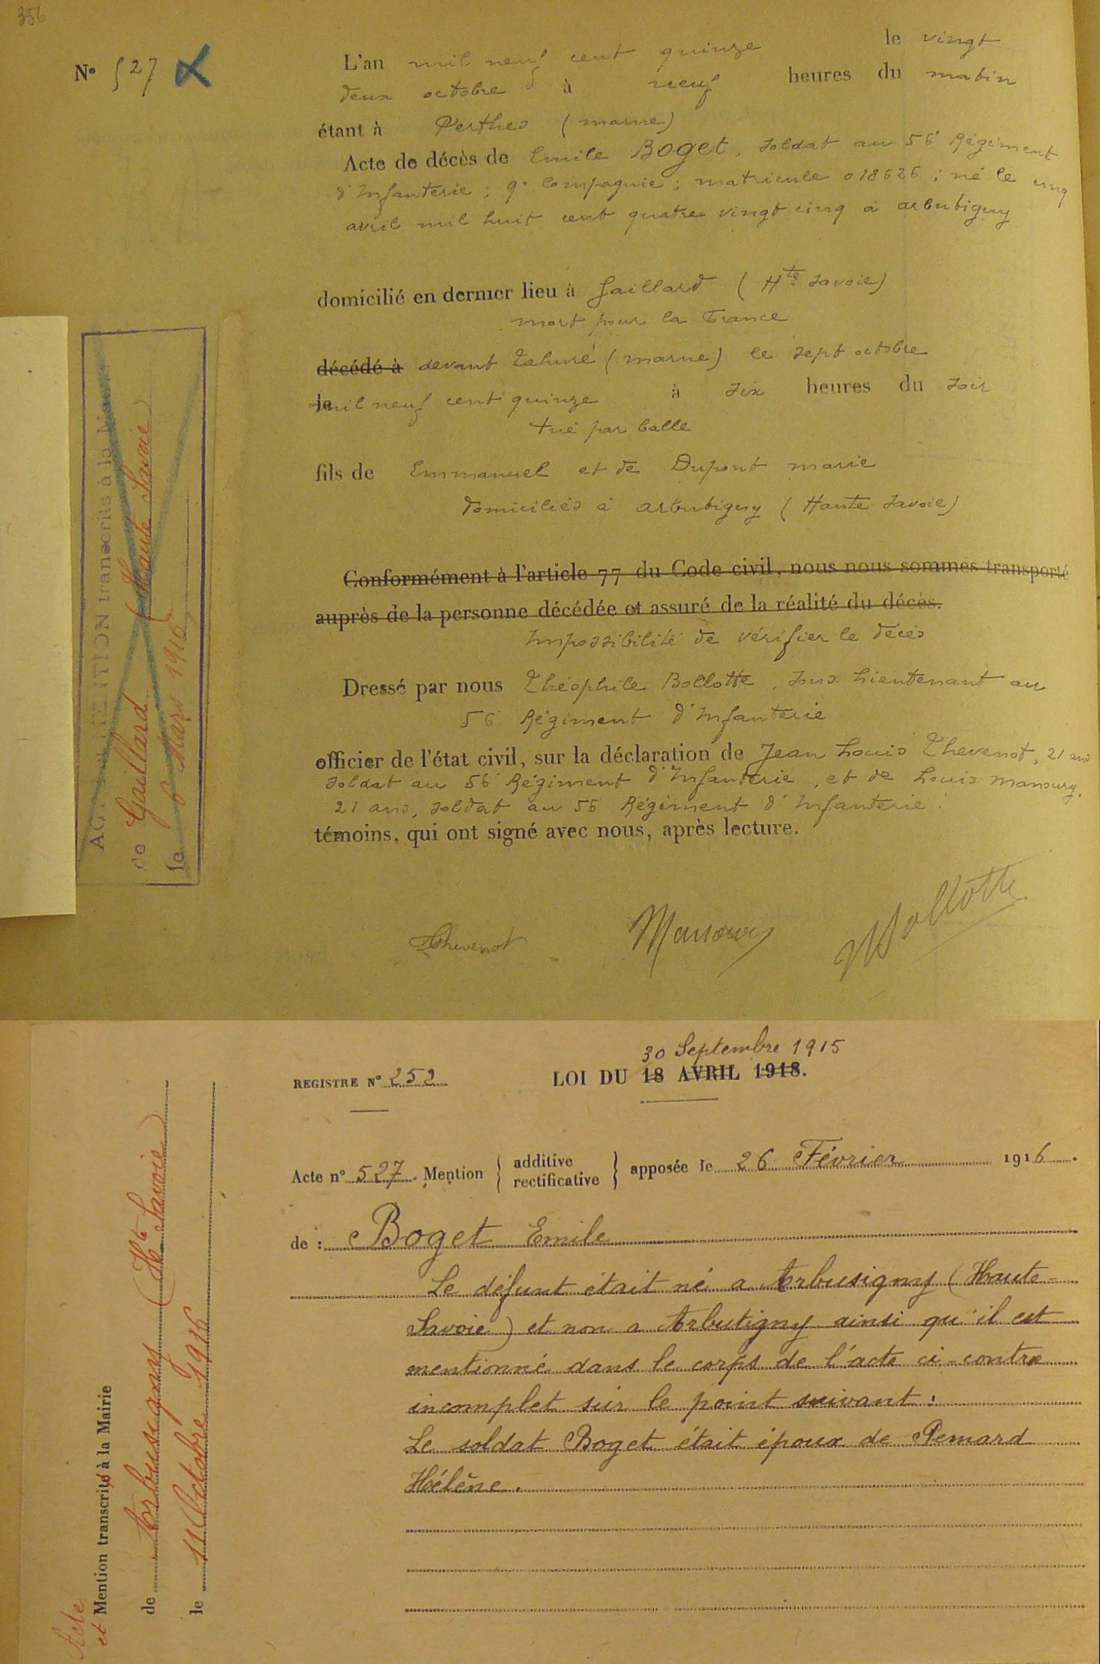 356
N° 527
L'an mil neuf cent quinze le vingt
deux octobre à neuf heures du matin
étant à Perthes (marne)
Acte de décès de Emile Boget, soldat au 56 Régiment
d'Infanterie ; 9e compagnie ; matricule 018626 ; né le cinq
avril mil huit cent quatre vingt cinq à arbubigny
domicilié en dernier lieu à Gaillard (Hte Savoie)
mort pour la France
décédé à devant Tahuré (marne) le sept octobre
le mil neuf cent quinze à six heures du soir
tué par balle
fils de Emmanuel et de Dupont marie
domiciliés à arbubigny (Haute Savoie)
Conformément à l'article 77 du Code civil, nous nous sommes transporté
auprès de la personne décédée et assuré de la réalité du décès.
Impossibilité de vérifier le décès
Dressé par nous Théophile Bollotte, sous Lieutenant au
56 Régiment d'Infanterie
officier de l'état civil, sur la déclaration de Jean Louis Thevenot, 21 ans
soldat au 56 Régiment d'Infanterie, et de Louis Mansuy,
21 ans, soldat au 56 Régiment d'Infanterie.
témoins, qui ont signé avec nous, après lecture.
Thevenot Bollotte
MENTION transcrits à la Mairie
de Gaillard (Haute Savoie)
le Mars 1916
30 Septembre 1915
REGISTRE N° 252 LOI DU 18 AVRIL 1918.
Acte n° 527. Mention { additive rectificative } apposée le 26 Février 1916.
de : Boget Emile
Le défunt était né a Arbusigny (Haute-
Savoie) et non a Arbutigny ainsi qu'il est
mentionné dans le corps de l'acte ci-contre
incomplet sur le point suivant :
Le soldat Boget était époux de Pemard
Hélène.
Acte
et Mention transcrits à la Mairie
de Arbusigny (Hte Savoie)
le 11 Octobre 1916